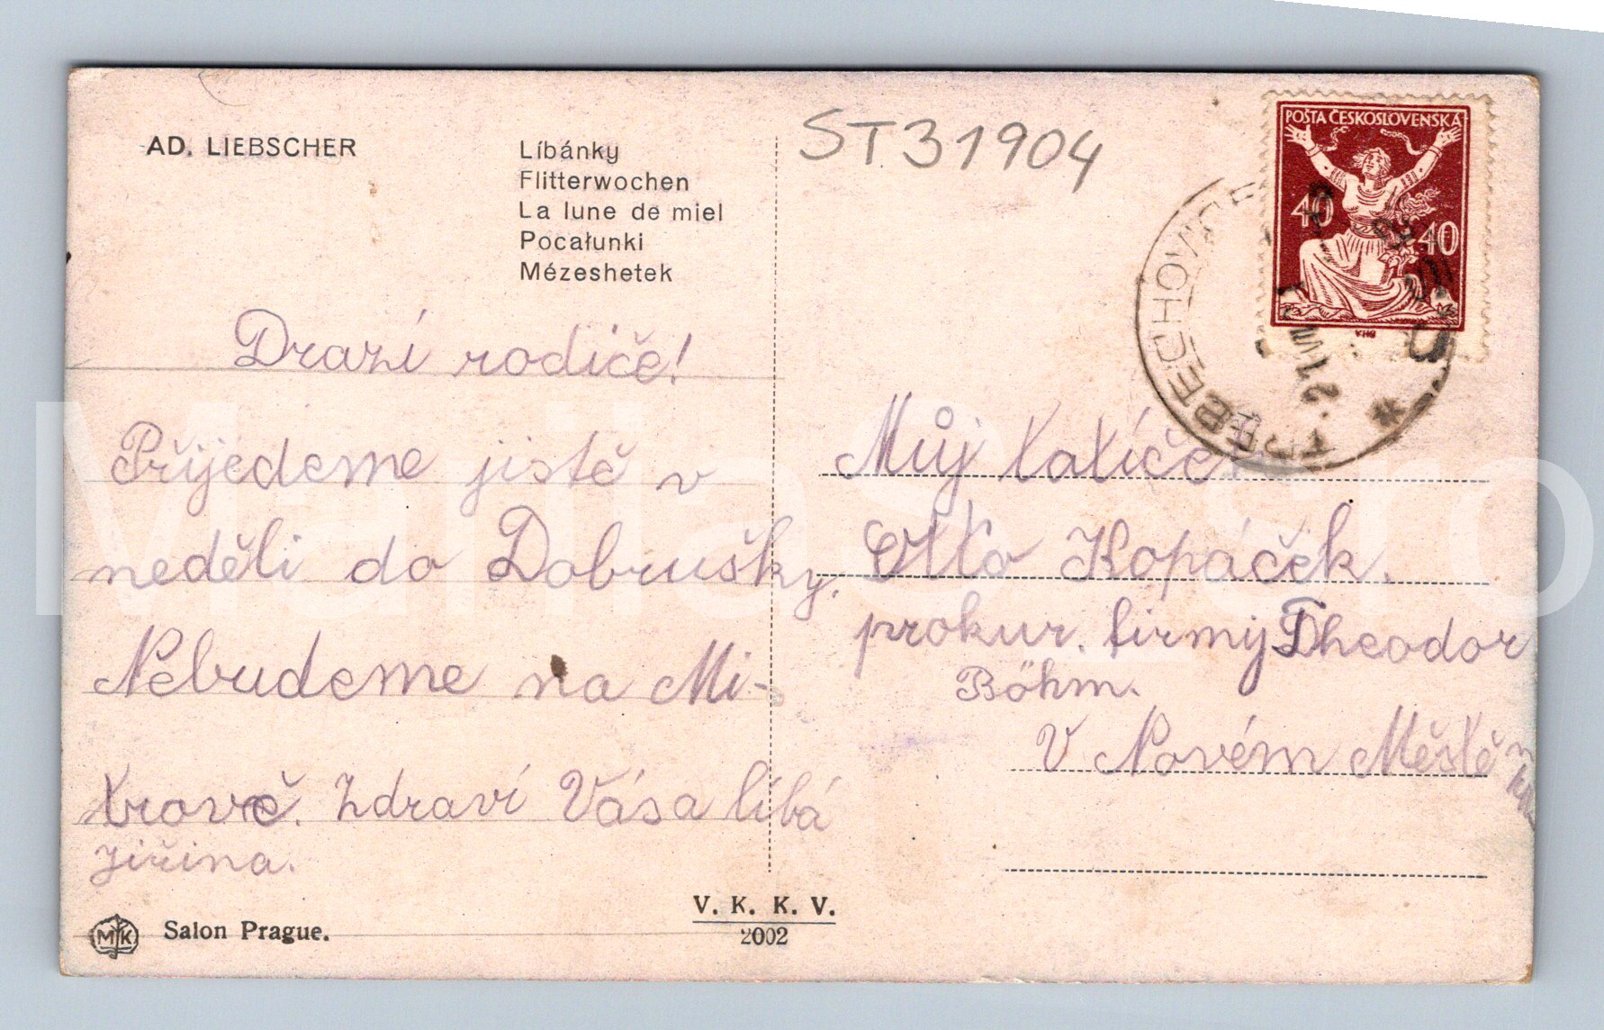 AD. LIEBSCHER
Líbánky
Flitterwochen
La lune de miel
Pocałunki
Mézeshetek
ST31904
POSTA ČESKOSLOVENSKÁ
40 40
TŘEBECHOVICE
Drazí rodiče!
Přijedeme jistě v
neděli do Dobrušky.
Nebudeme na Mi-
trově. Zdraví Vás a líbá
Jiřina.
Můj tatíček
Otto Kopáček.
prokur. firmy Theodor
Böhm.
V Novém Městě n
V. K. K. V.
2002
MK Salon Prague.